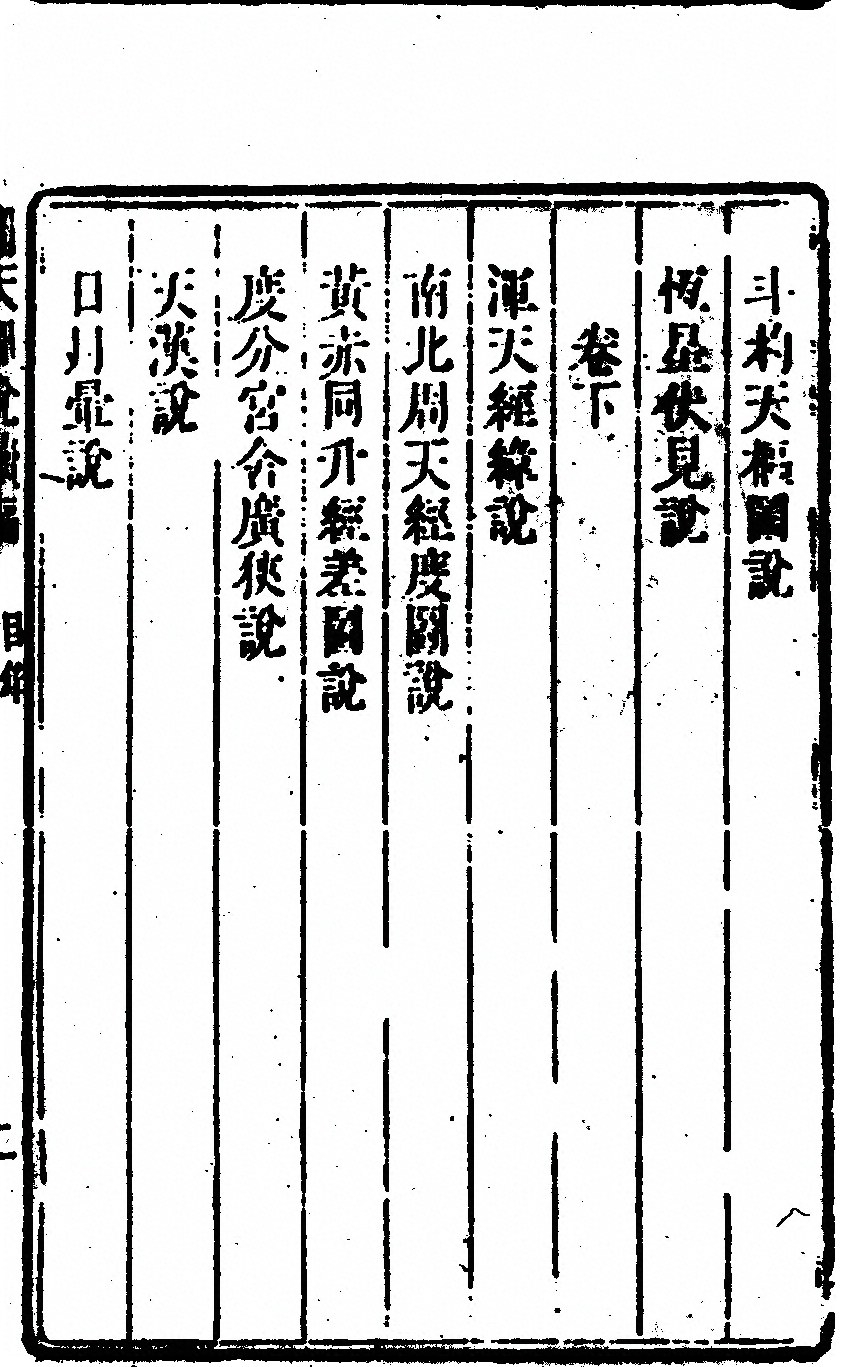 斗杓天樞圖說
恆星伏見說
卷下
渾天經緯說
南北周天經度圖說
黃赤同升經差圖說
度分宮舍廣狹說
天漢說
日月暈說
目錄
二